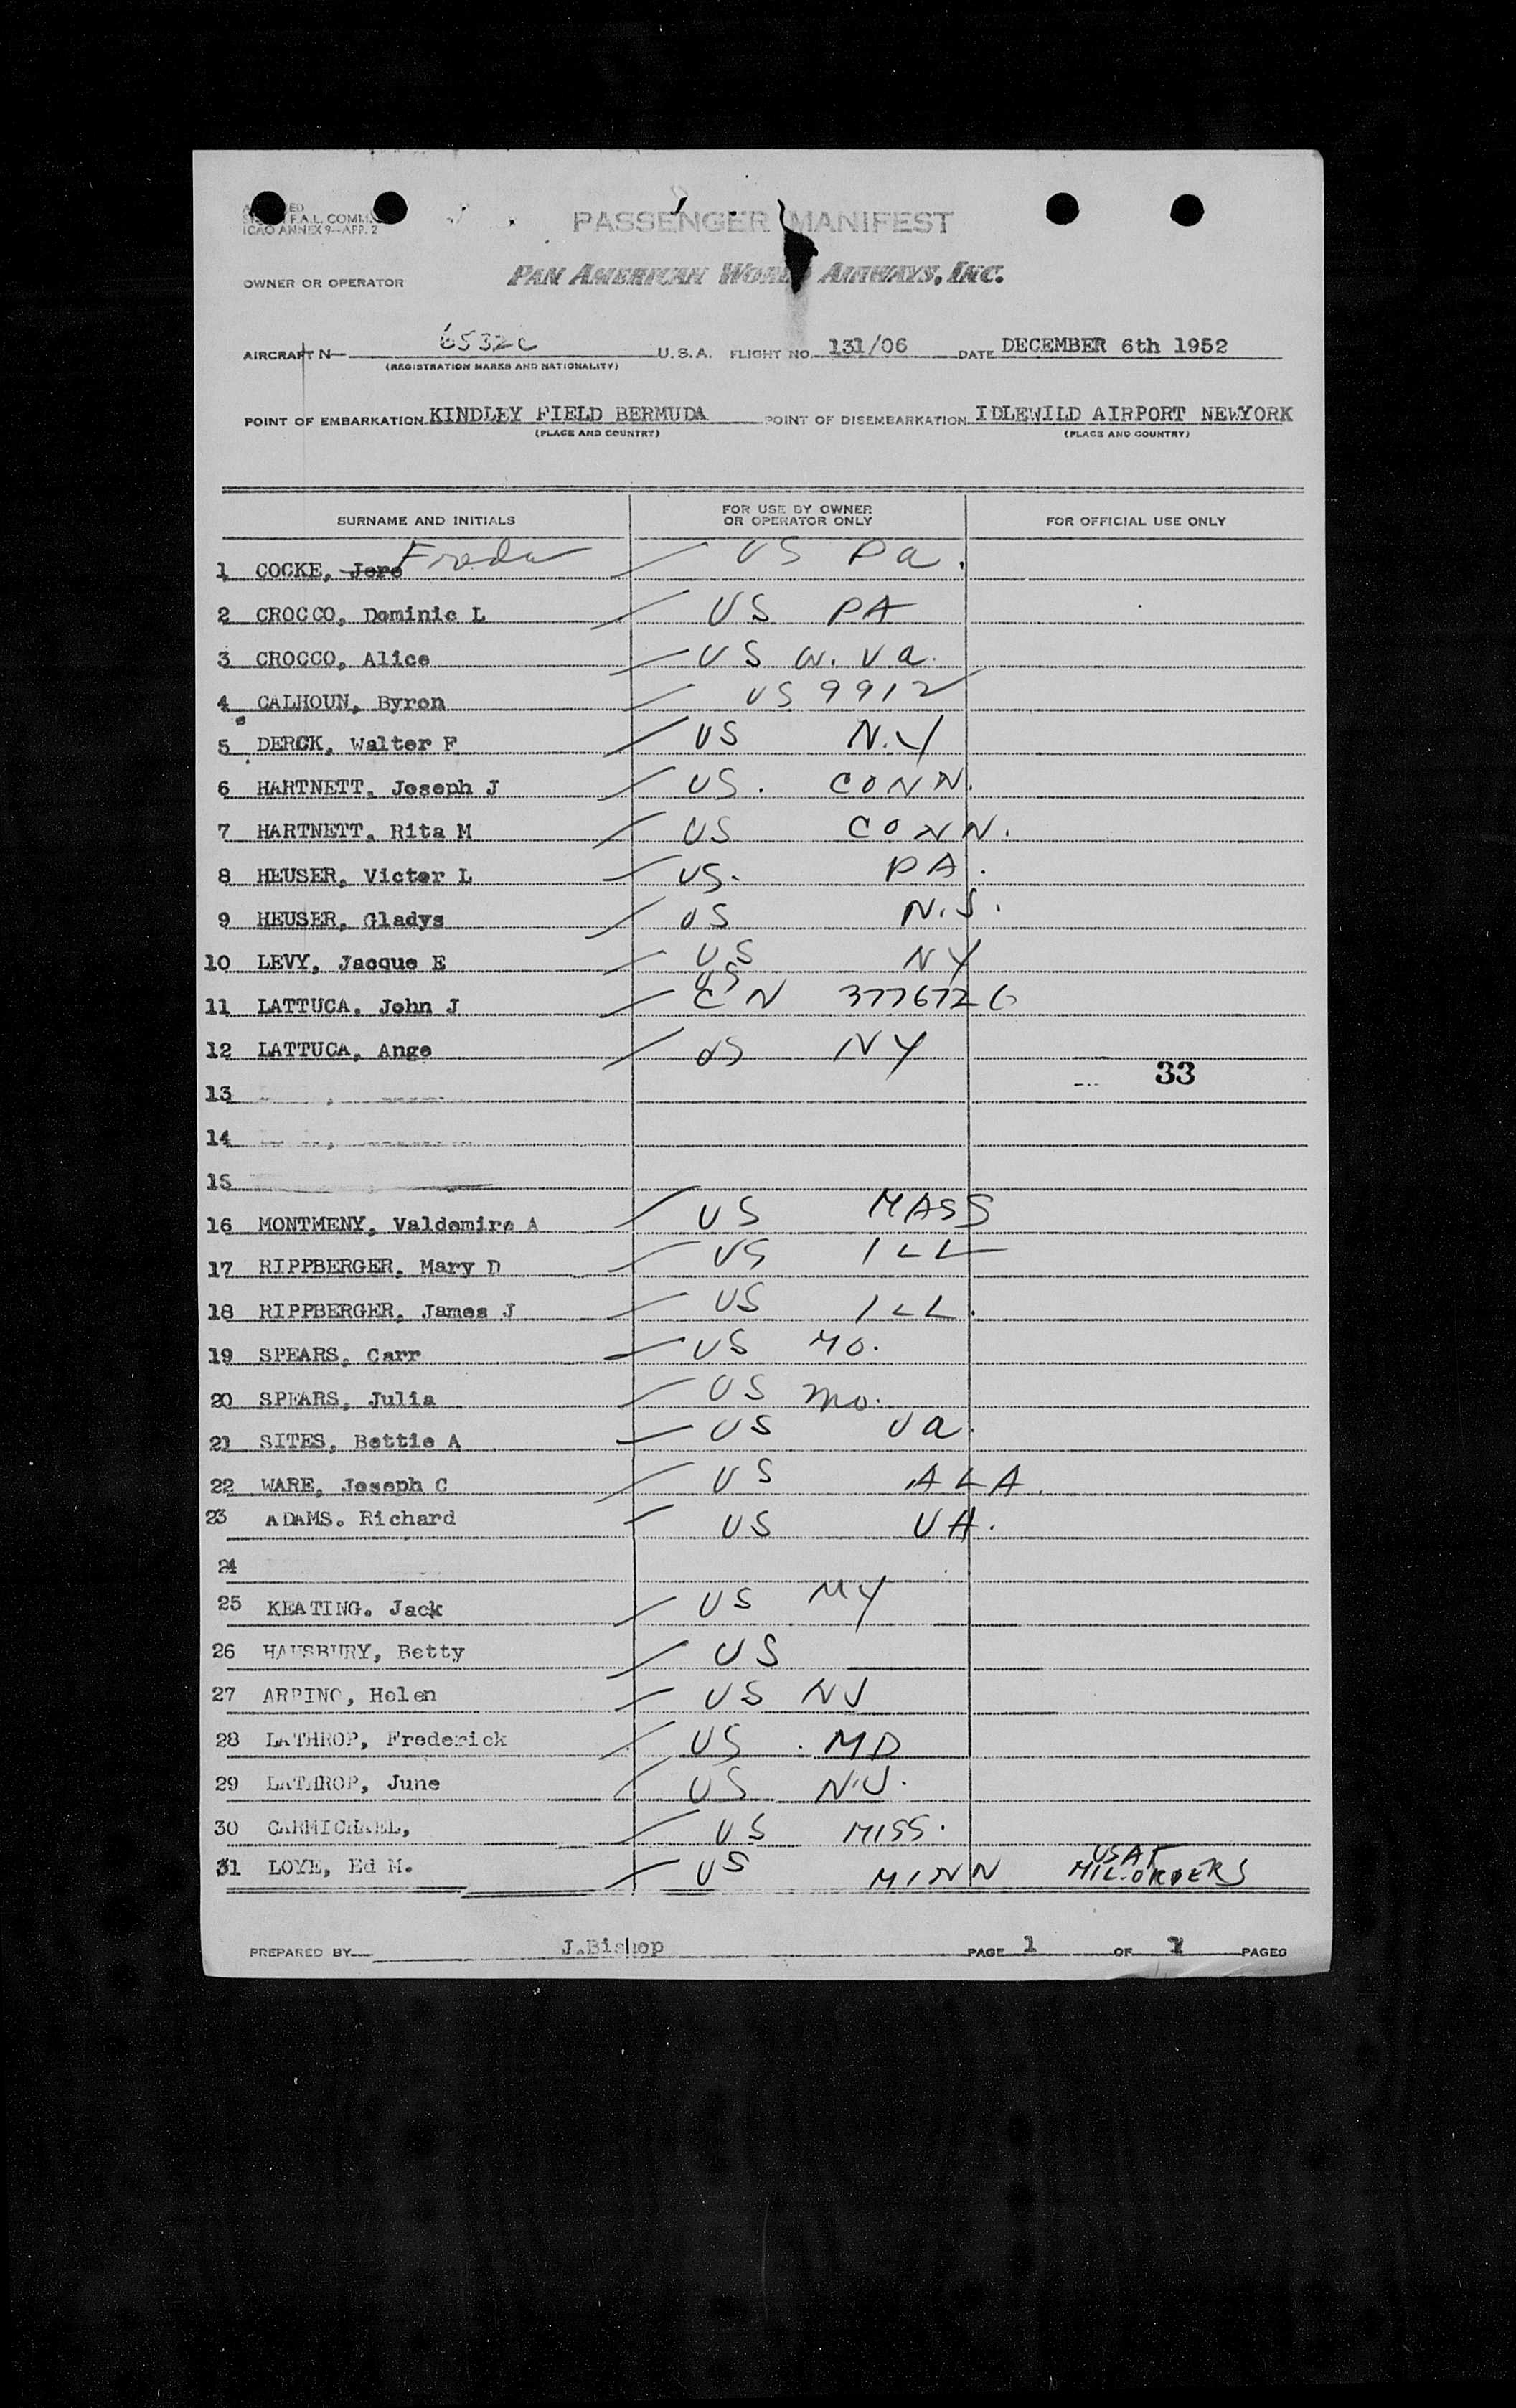 PASSENGER MANIFEST
F.A.L. COMM.
ICAO ANNEX 9—APP. 2
OWNER OR OPERATOR PAN AMERICAN WORLD AIRWAYS, INC.
AIRCRAFT N— 6532C U.S.A. FLIGHT NO. 131/06 DATE DECEMBER 6th 1952
(REGISTRATION MARKS AND NATIONALITY)
POINT OF EMBARKATION KINDLEY FIELD BERMUDA POINT OF DISEMBARKATION IDLEWILD AIRPORT NEWYORK
(PLACE AND COUNTRY) (PLACE AND COUNTRY)
SURNAME AND INITIALS FOR USE BY OWNER OR OPERATOR ONLY FOR OFFICIAL USE ONLY
1 COCKE, Jere Freda US Pa.
2 CROCCO, Dominic L US PA
3 CROCCO, Alice US W. Va.
4 CALHOUN, Byron US 9912
5 DERCK, Walter F US N.Y
6 HARTNETT, Joseph J US. CONN.
7 HARTNETT, Rita M US CONN.
8 HEUSER, Victor L US. PA.
9 HEUSER, Gladys US N.J.
10 LEVY, Jacque E US NY
11 LATTUCA, John J US CN 3776726
12 LATTUCA, Ange US NY
33
13
14
15
16 MONTMENY, Valdemire A US MASS
17 RIPPBERGER, Mary D US ILL
18 RIPPBERGER, James J US ILL.
19 SPEARS, Carr US MO.
20 SPEARS, Julia US Mo.
21 SITES, Bettie A US Va.
22 WARE, Joseph C US ALA.
23 ADAMS. Richard US VA.
24
25 KEATING. Jack US NY
26 HANSBURY, Betty US
27 ARPINO, Helen US NJ
28 LATHROP, Frederick US MD
29 LATHROP, June US N.J.
30 CARMICHAEL, US MISS.
31 LOYE, Ed M. US MINN USAF MIL. ORDERS
PREPARED BY J.Bishop PAGE 1 OF 1 PAGES